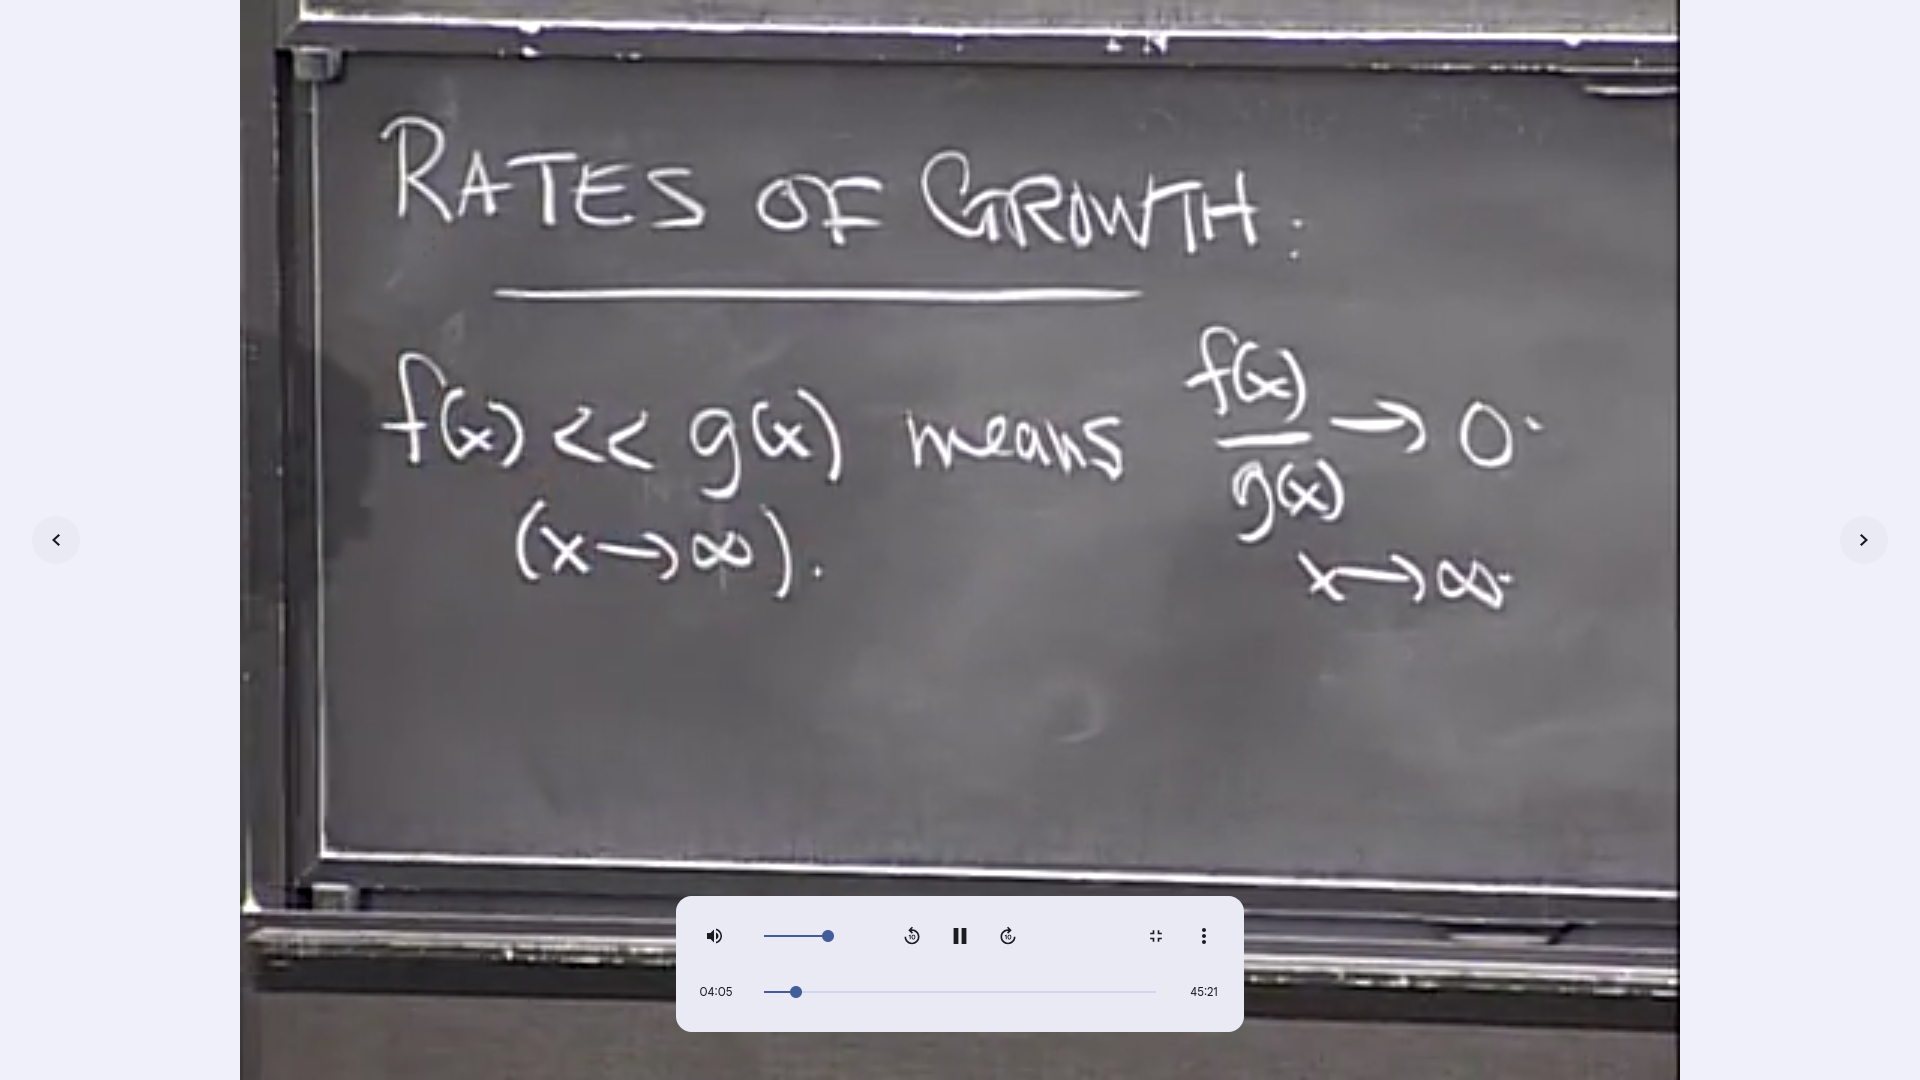 RATES OF GROWTH:
f(x) << g(x) means f(x)/g(x) → 0
(x → ∞). x → ∞
10 10
04:05 45:21